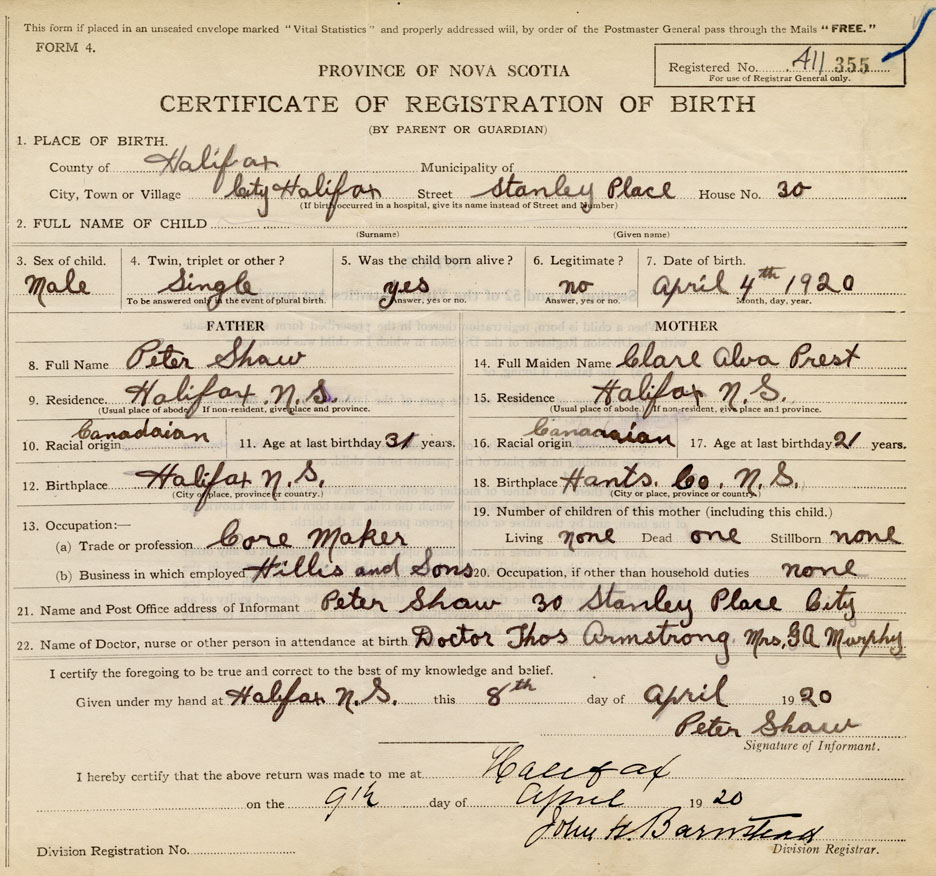 This form if placed in an unsealed envelope marked "Vital Statistics" and properly addressed will, by order of the Postmaster General pass through the Mails "FREE."
FORM 4.
Registered No. A11 355
For use of Registrar General only.
PROVINCE OF NOVA SCOTIA
CERTIFICATE OF REGISTRATION OF BIRTH
(BY PARENT OR GUARDIAN)
1. PLACE OF BIRTH.
County of Halifax Municipality of
City, Town or Village City Halifax Street Stanley Place House No. 30
(If birth occurred in a hospital, give its name instead of Street and Number)
2. FULL NAME OF CHILD
(Surname) (Given name)
3. Sex of child. 4. Twin, triplet or other? 5. Was the child born alive? 6. Legitimate? 7. Date of birth.
Male Single yes no April 4th 1920
To be answered only in the event of plural birth. Answer, yes or no. Answer, yes or no. Month, day, year.
FATHER MOTHER
8. Full Name Peter Shaw 14. Full Maiden Name Clare Alva Prest
9. Residence. Halifax. N.S. 15. Residence Halifax N.S.
(Usual place of abode. If non-resident, give place and province. (Usual place of abode. If non-resident, give place and province.
10. Racial origin Canadaian 11. Age at last birthday 31 years. 16. Racial origin Canadaian 17. Age at last birthday 21 years.
12. Birthplace Halifax N.S. 18. Birthplace Hants. Co. N.S.
(City or place, province or country.) (City or place, province or country.)
13. Occupation:— 19. Number of children of this mother (including this child.)
(a) Trade or profession Core Maker Living none Dead one Stillborn none
(b) Business in which employed Hillis and Sons 20. Occupation, if other than household duties none
21. Name and Post Office address of Informant Peter Shaw 30 Stanley Place City
22. Name of Doctor, nurse or other person in attendance at birth Doctor Thos Armstrong. Mrs. GA Murphy
I certify the foregoing to be true and correct to the best of my knowledge and belief.
Given under my hand at Halifax N.S. this 8th day of April 1920
Peter Shaw
Signature of Informant.
I hereby certify that the above return was made to me at Halifax
on the 9th day of April 1920
John H. Barnstead
Division Registration No. Division Registrar.